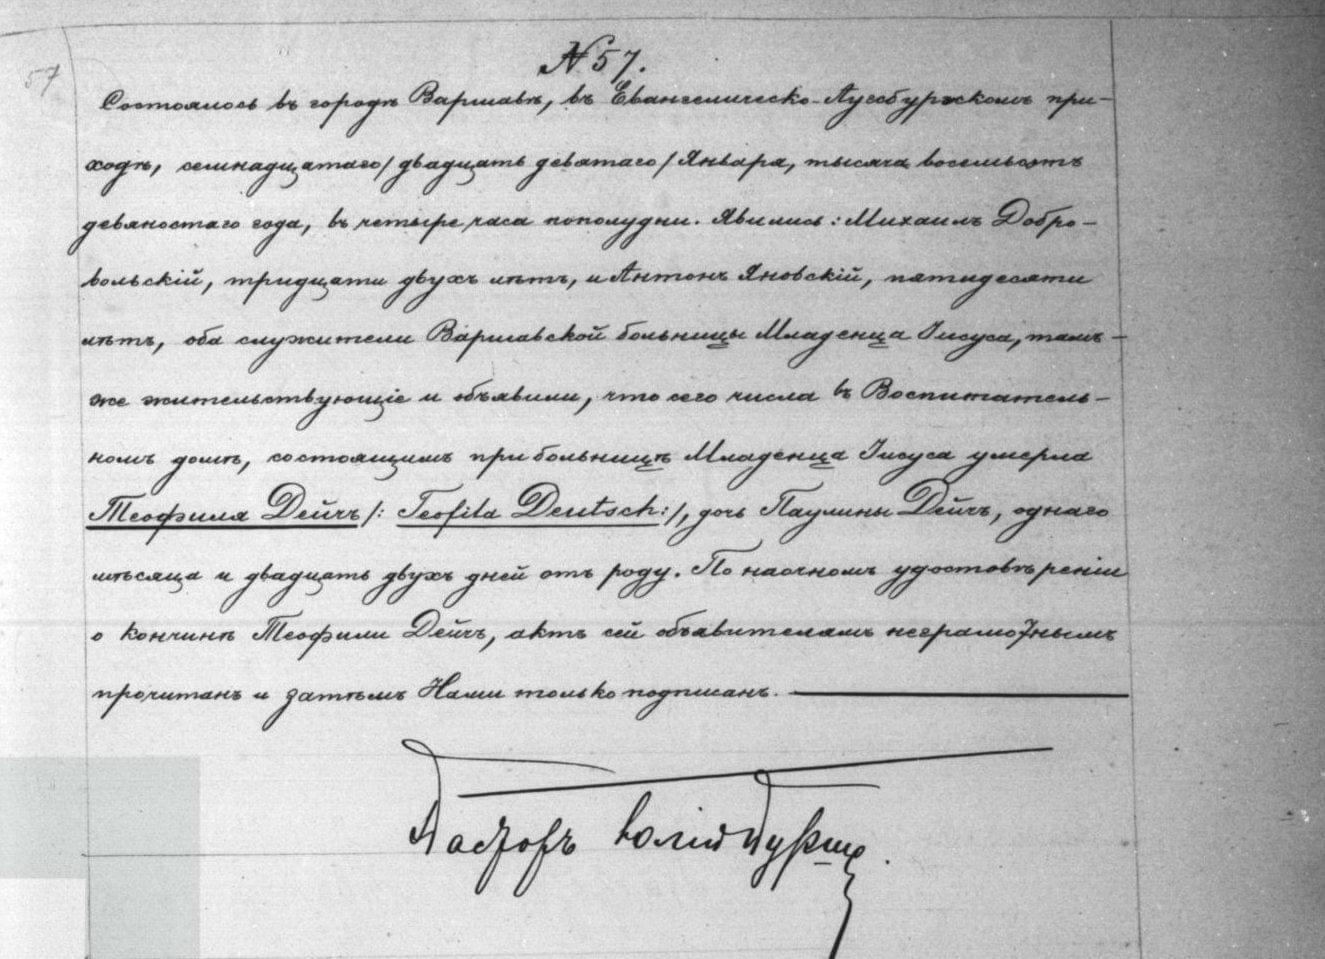 57
№ 57.
Состоялось въ городѣ Варшавѣ, въ Евангелическо-Аугсбургскомъ при-
ходѣ, семнадцатаго/двадцать девятаго/Января, тысяча восемьсотъ
девяностаго года, въ четыре часа пополудни. Явились: Михаилъ Добро-
вольскій, тридцати двухъ лѣтъ, и Антонъ Яновскій, пятидесяти
лѣтъ, оба служители Варшавской больницы Младенца Іисуса, тамъ-
же жительствующіе и объявили, что сего числа въ Воспитатель-
номъ домѣ, состоящимъ при больницѣ Младенца Іисуса умерла
Теофиля Дейчъ /: Teofila Deutsch :/, дочь Паулины Дейчъ, однаго
мѣсяца и двадцать двухъ дней отъ роду. По наочномъ удостовѣреніи
о кончинѣ Теофили Дейчъ, актъ сей объявителямъ неграмотнымъ
прочитанъ и затѣмъ Нами только подписанъ.
Пасторъ Юлій Бурше.